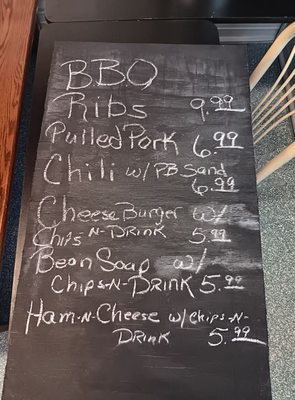 B.B.Q
Ribs 9.99
Pulled Pork 6.99
Chili w/ P.B Sand
6.99
Cheese Burger w/
Chips -N- Drink 5.99
Bean Soap w/
Chips -N- Drink 5.99
Ham -N- Cheese w/ Chips -N-
Drink 5.99